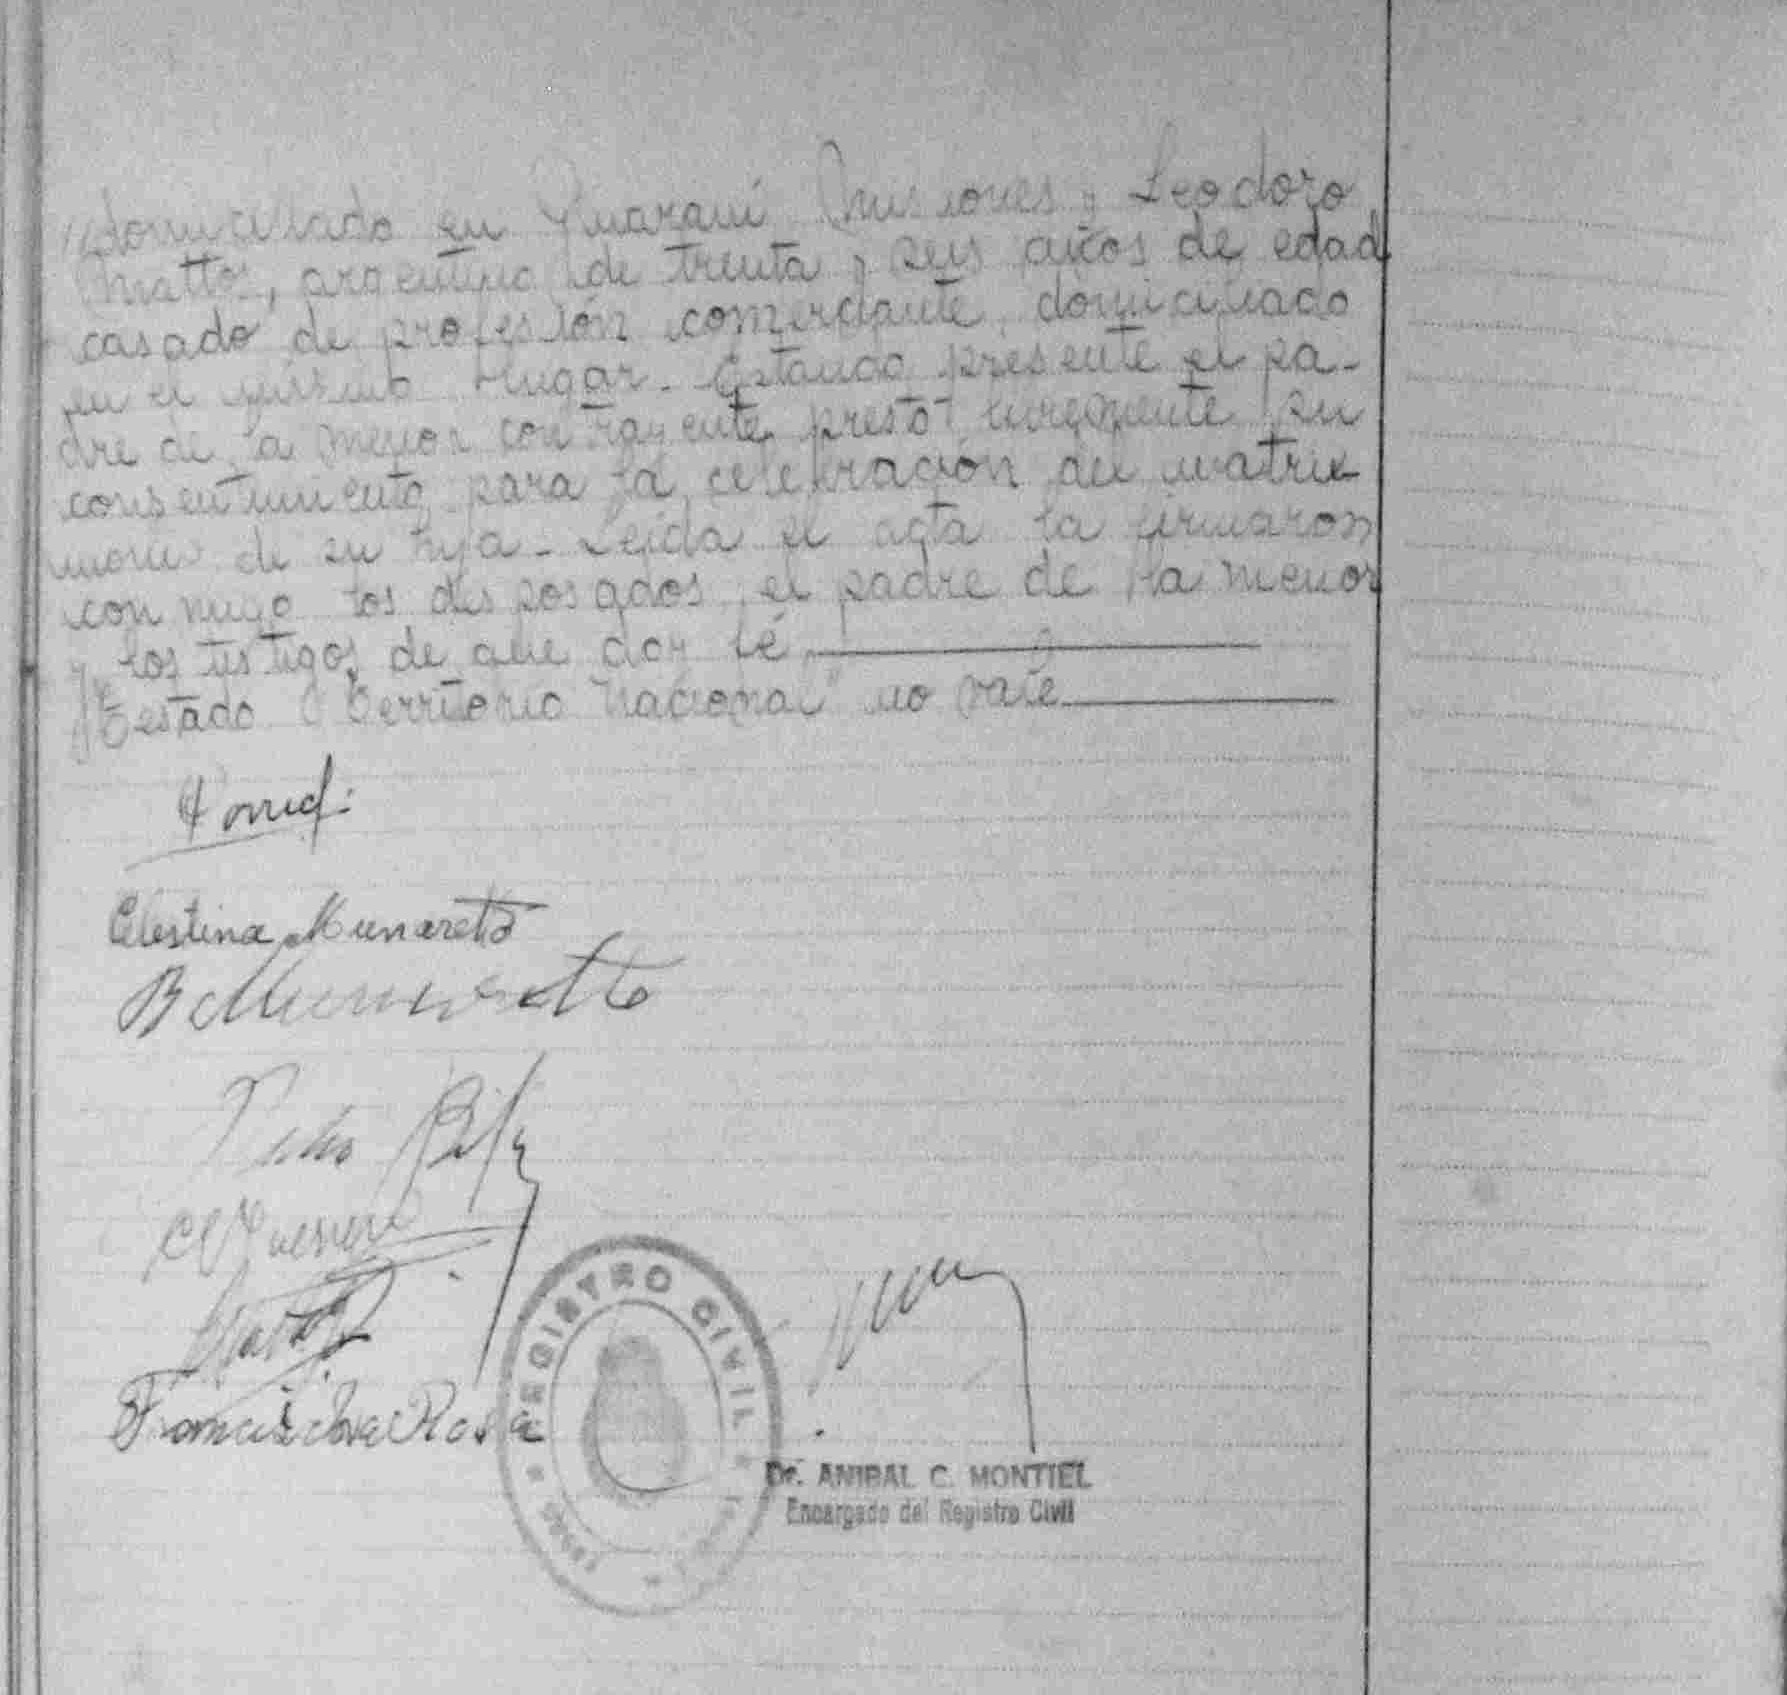 //domiciliado en Guaraní Misiones y Leodoro
Matto, argentino de treinta y seis años de edad
casado de profesión comerciante, domiciliado
en el mismo lugar. Estando presente el pa-
dre de la menor contrayente prestó libremente su
consentimiento para la celebración del matri-
monio de su hija - Leída el acta la firmaron
conmigo los desposados, el padre de la menor
y los testigos de que doy fé
Testado "Territorio Nacional" no vale
Celestina Munaretto
B Munaretto
Pedro
Francisco Da Rosa
REGISTRO CIVIL
Dr. ANIBAL C. MONTIEL
Encargado del Registro Civil